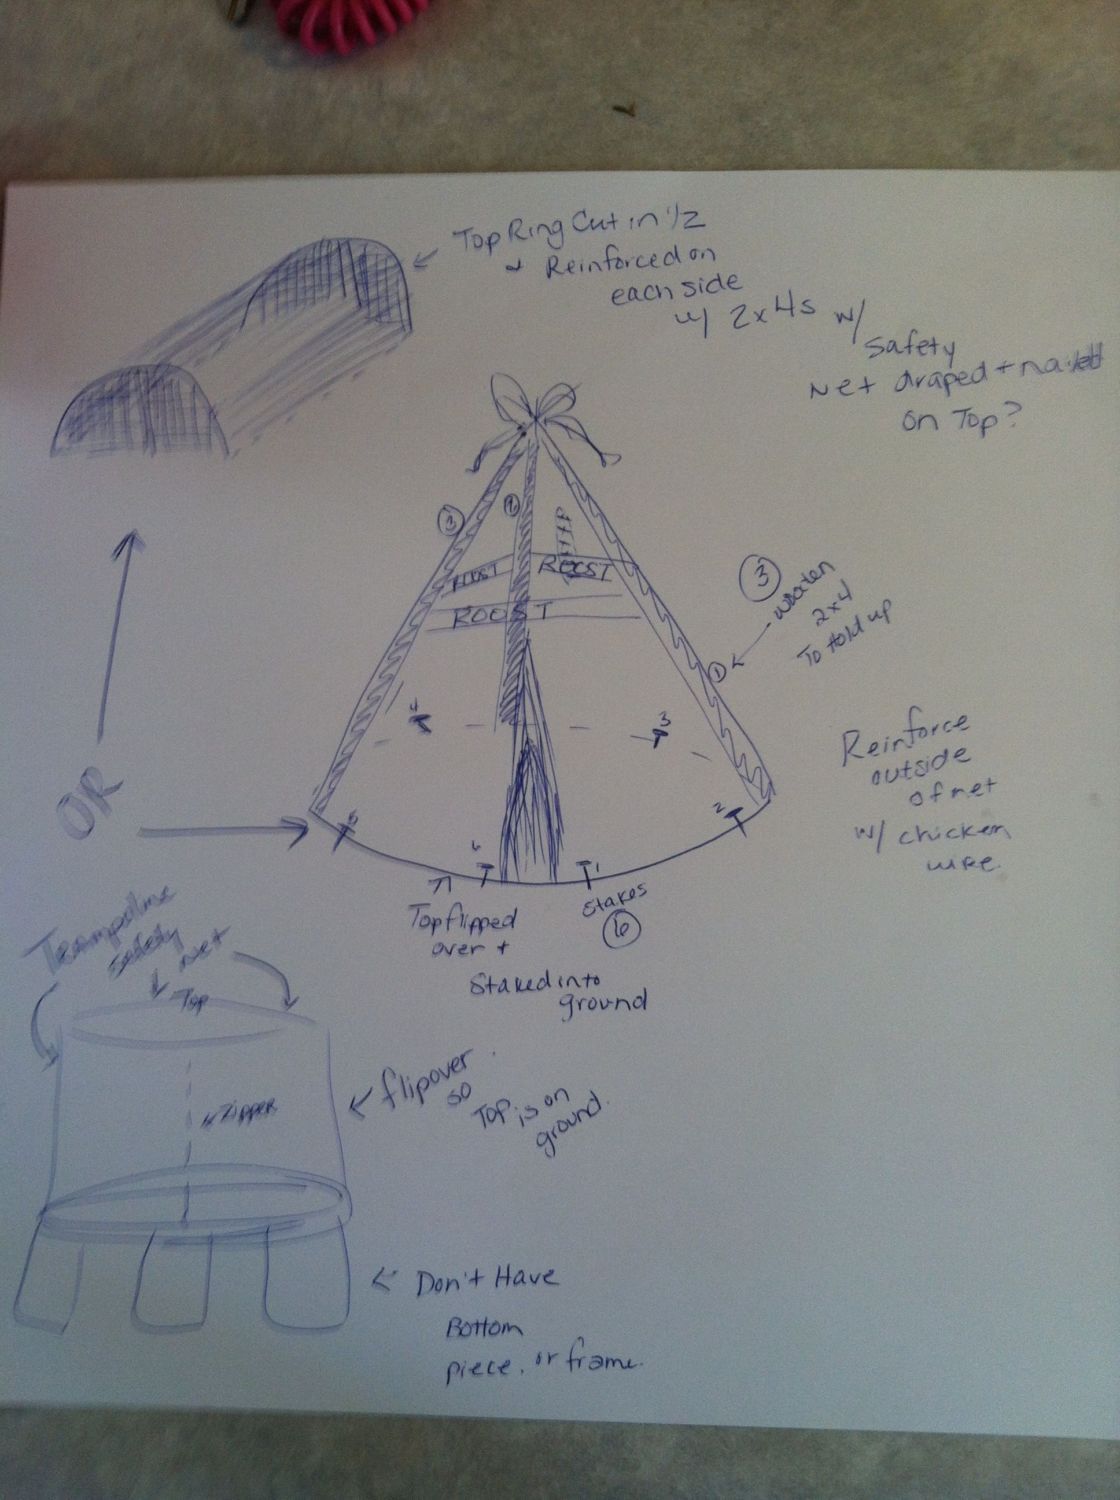 Top Ring Cut in 1/2
+ Reinforced on
each side
w/ 2x4s w/
safety
Net draped + nailed
on Top?
3
2
ROOST
ROOST
ROOST
3
wooden
2x4
To Hold up
1
4
3
Reinforce
outside
of net
w/ chicken
wire.
OR
5
6
1
2
Stakes
6
Top flipped
over +
Staked into
ground
Trampoline
safety
net
Top
zipper
flip over
so
Top is on
ground.
Don't Have
Bottom
piece. or frame.